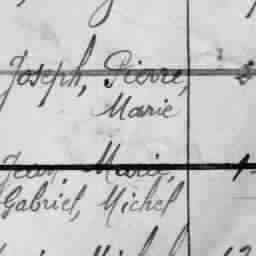 Joseph, Pierre,
Marie
Jean, Marie,
Gabriel, Michel